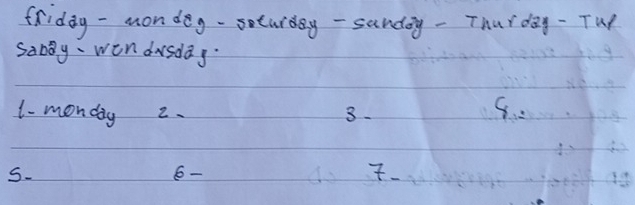 ffriday - monday - soturday - sanday - Thurday - Tue
sabay - wendnsday.
1- monday 2- 3- 4-
5- 6- 7-